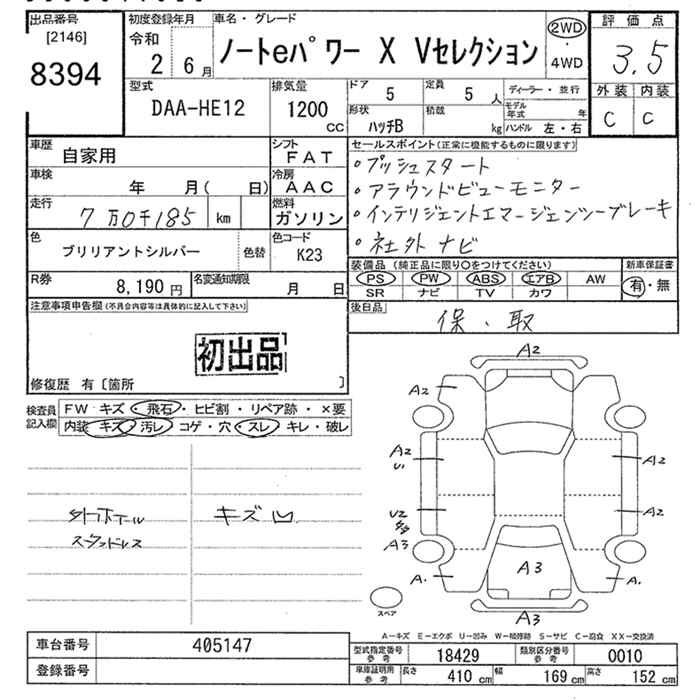 出品番号
[2146]
8394
初度登録年月
令和
2 6月
車名・グレード
ノートeパワー X Vセレクション
2WD
・
4WD
評価点
3.5
外装 内装
C C
型式
DAA-HE12
排気量
1200
CC
ドア
5
定員
5人
ディーラー・並行
形状
ハッチB
積載
kg
モデル年式 年
ハンドル 左・右
車歴
自家用
シフト
FAT
車検
年 月( 日)
冷房
AAC
走行
7万0千185 km
燃料
ガソリン
色
ブリリアントシルバー
色替
色コード
K23
R券
8,190円
名変通知期限
月 日
セールスポイント(正常に機能するものに限ります)
・プッシュスタート
・アラウンドビューモニター
・インテリジェントエマージェンシーブレーキ
・社外ナビ
装備品(純正品に限り○をつけてください)
PS PW ABS エアB AW
SR ナビ TV カワ
新車保証書
有・無
後日品
保・取
注意事項申告欄(不具合内容等は具体的に記入して下さい)
初出品
修復歴 有〔箇所 〕
検査員記入欄
FW キズ・飛石・ヒビ割・リペア跡・×要
内装 キズ・汚レ・コゲ・穴・スレ・キレ・破レ
外ホイール
スタッドレス
キズ凹
A2
A2
A2
U1
U2
A3
A.
A2
A2
A3
A.
A3
スペア
A-キズ E-エクボ U-凹み W-補修跡 S-サビ C-腐食 XX-交換済
車台番号
405147
登録番号
型式指定番号
参考
18429
類別区分番号
参考
0010
車庫証明用
参考
長さ
410 cm
幅
169 cm
高さ
152 cm